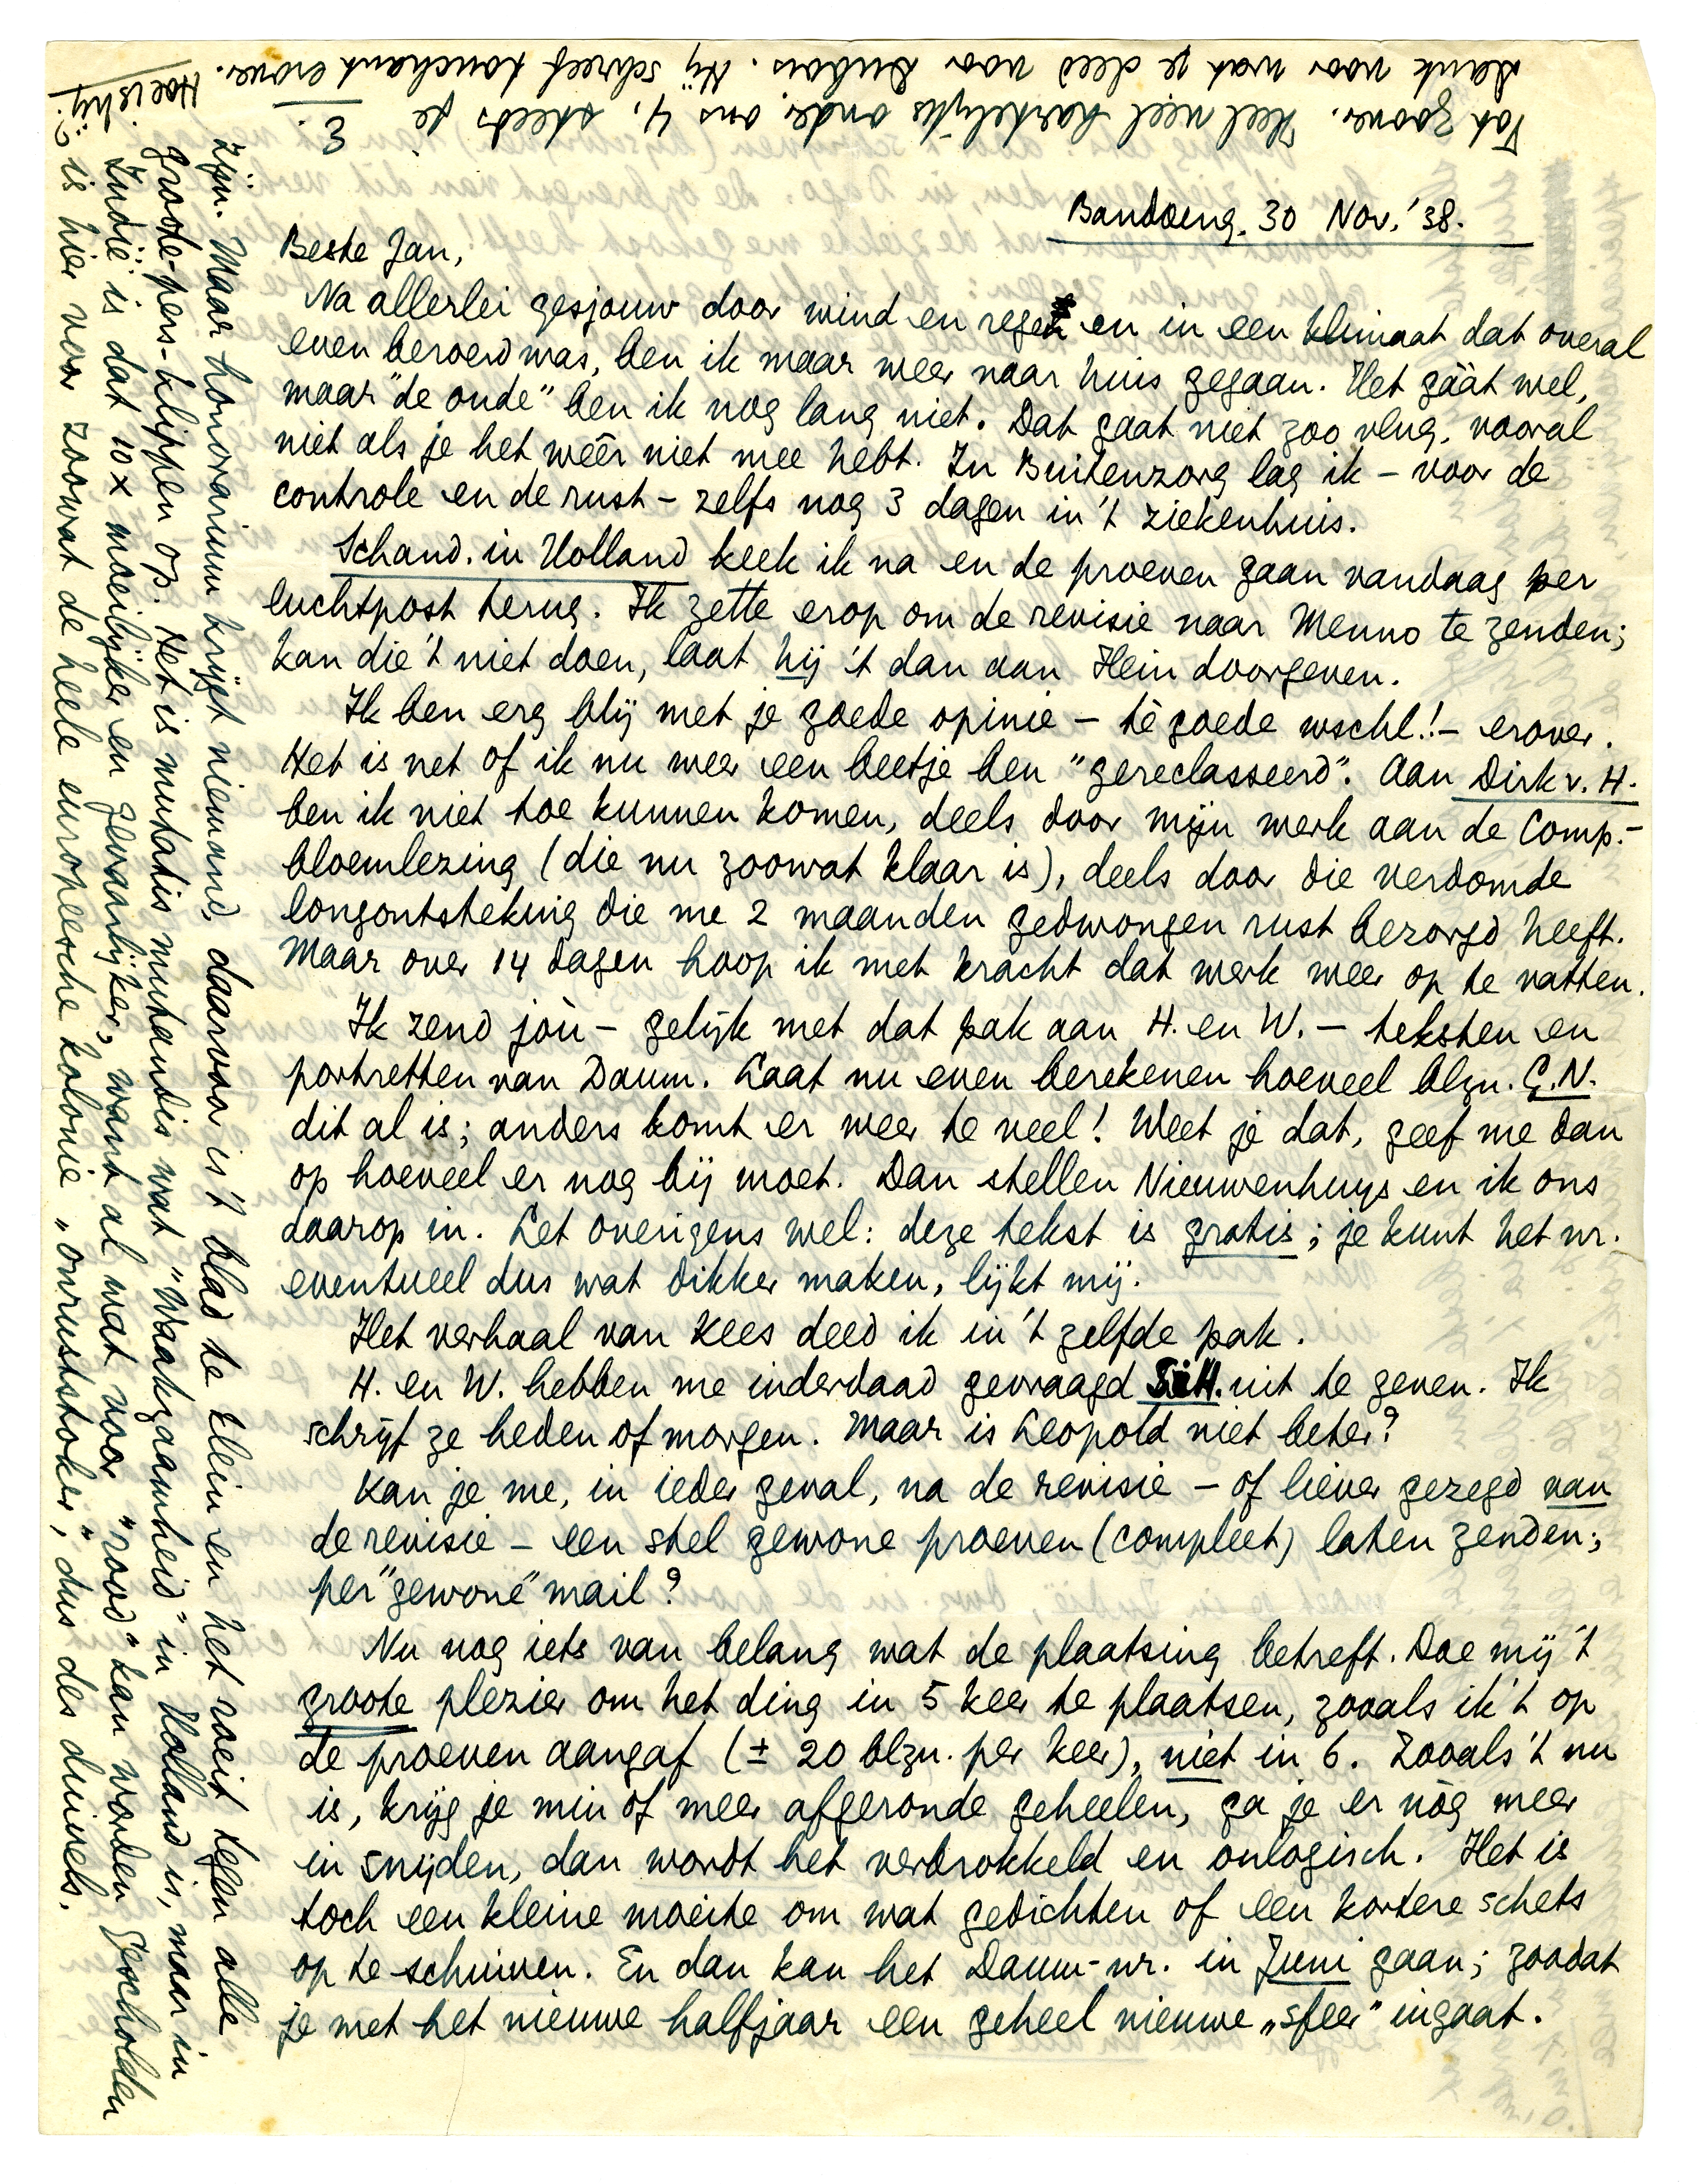 Bandoeng. 30 Nov. '38.
Beste Jan,
Na allerlei gesjouw door wind en regen en in een klimaat dat overal
even beroerd was, ben ik maar weer naar huis gegaan. Het gáát wel,
maar "de oude" ben ik nog lang niet. Dat gaat niet zoo vlug, vooral
niet als je het wéér niet mee hebt. In Buitenzorg lag ik – voor de
controle en de rust – zelfs nog 3 dagen in 't ziekenhuis.
Schand. in Holland keek ik na en de proeven gaan vandaag per
luchtpost terug. Ik zette erop om de revisie naar Menno te zenden;
kan die 't niet doen, laat hij 't dan aan Hein doorgeven.
Ik ben erg blij met je goede opinie – tè goede wschl.! – erover.
Het is net of ik nu weer een beetje ben "gereclasseerd". Aan Dirk v. H.
ben ik niet toe kunnen komen, deels door mijn werk aan de Comp.-
bloemlezing (die nu zoowat klaar is), deels door die verdomde
longontsteking die me 2 maanden gedwongen rust bezorgd heeft.
Maar over 14 dagen hoop ik met kracht dat werk weer op te vatten.
Ik zend jòu – gelijk met dat pak aan H. en W. – teksten en
portretten van Daum. Laat nu even berekenen hoeveel blzn. G.N.
dit al is; anders komt er weer te veel! Weet je dat, geef me dan
op hoeveel er nog bij moet. Dan stellen Nieuwenhuys en ik ons
daarop in. Let overigens wel: deze tekst is gratis; je kunt het nr.
eventueel dus wat dikker maken, lijkt mij.
Het verhaal van Kees deed ik in 't zelfde pak.
H. en W. hebben me inderdaad gevraagd SiH. uit te geven. Ik
schrijf ze heden of morgen. Maar is Leopold niet beter?
Kan je me, in ieder geval, na de revisie – of liever gezegd van
de revisie – een stel gewone proeven (compleet) laten zenden;
per "gewone" mail?
Nu nog iets van belang wat de plaatsing betreft. Doe mij 't
groote plezier om het ding in 5 keer te plaatsen, zooals ik 't op
de proeven aangaf (± 20 blzn. per keer), niet in 6. Zooals 't nu
is, krijg je min of meer afgeronde geheelen, ga je er nòg meer
in snijden, dan wordt het verbrokkeld en onlogisch. Het is
toch een kleine moeite om wat gedichten of een kortere schets
op te schuiven. En dan kan het Daum-nr. in Juni gaan; zoodat
je met het nieuwe halfjaar een geheel nieuwe „sfeer" ingaat.
zijn. Maar honorarium krijgt niemand, daarvoor is 't blad te klein en het roeit tegen alle
groote-pers-klippen op. Het is mutatis mutandis wat "Waakzaamheid" in Holland is, maar in
Indië is dat 10 x moeilijker en gevaarlijker, want al wat voor "rood" kan worden gescholden
is hier voor zoowat de heele europeesche kolonie „onruststoker", dus des duivels.
Tot zoover. Heel veel hartelijks onder ons 4, steeds je
E.
Dank voor wat je deed voor Dubois. Hij schreef touchant erover. Hoe is hij?